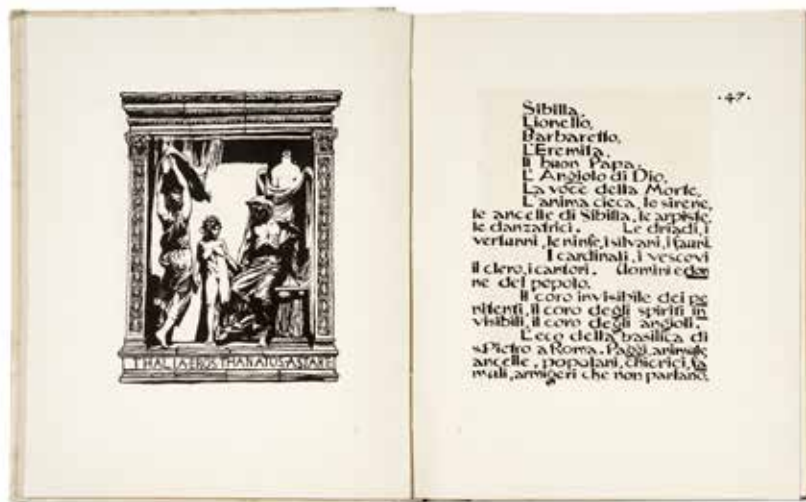 THALIA·EROS·THANATOS·ASTARTE
·47·
Sibilla.
Lionello.
Barbaretto.
L'Eremita.
Il buon Papa.
L'Angiolo di Dio.
La voce della Morte.
L'anima cieca, le sirene,
le ancelle di Sibilla, le arpiste,
le danzatrici. Le driadi, i
vertunni, le ninfe, i silvani, i fauni.
I cardinali, i vescovi
il clero, i cantori. Uomini e don
ne del popolo.
Il coro invisibile dei pe
nitenti, il coro degli spiriti in
visibili, il coro degli angioli.
L'eco della basilica di
s.Pietro a Roma. Paggi, animule
ancelle, popolani, chierici, fa
muli, armigeri che non parlano.